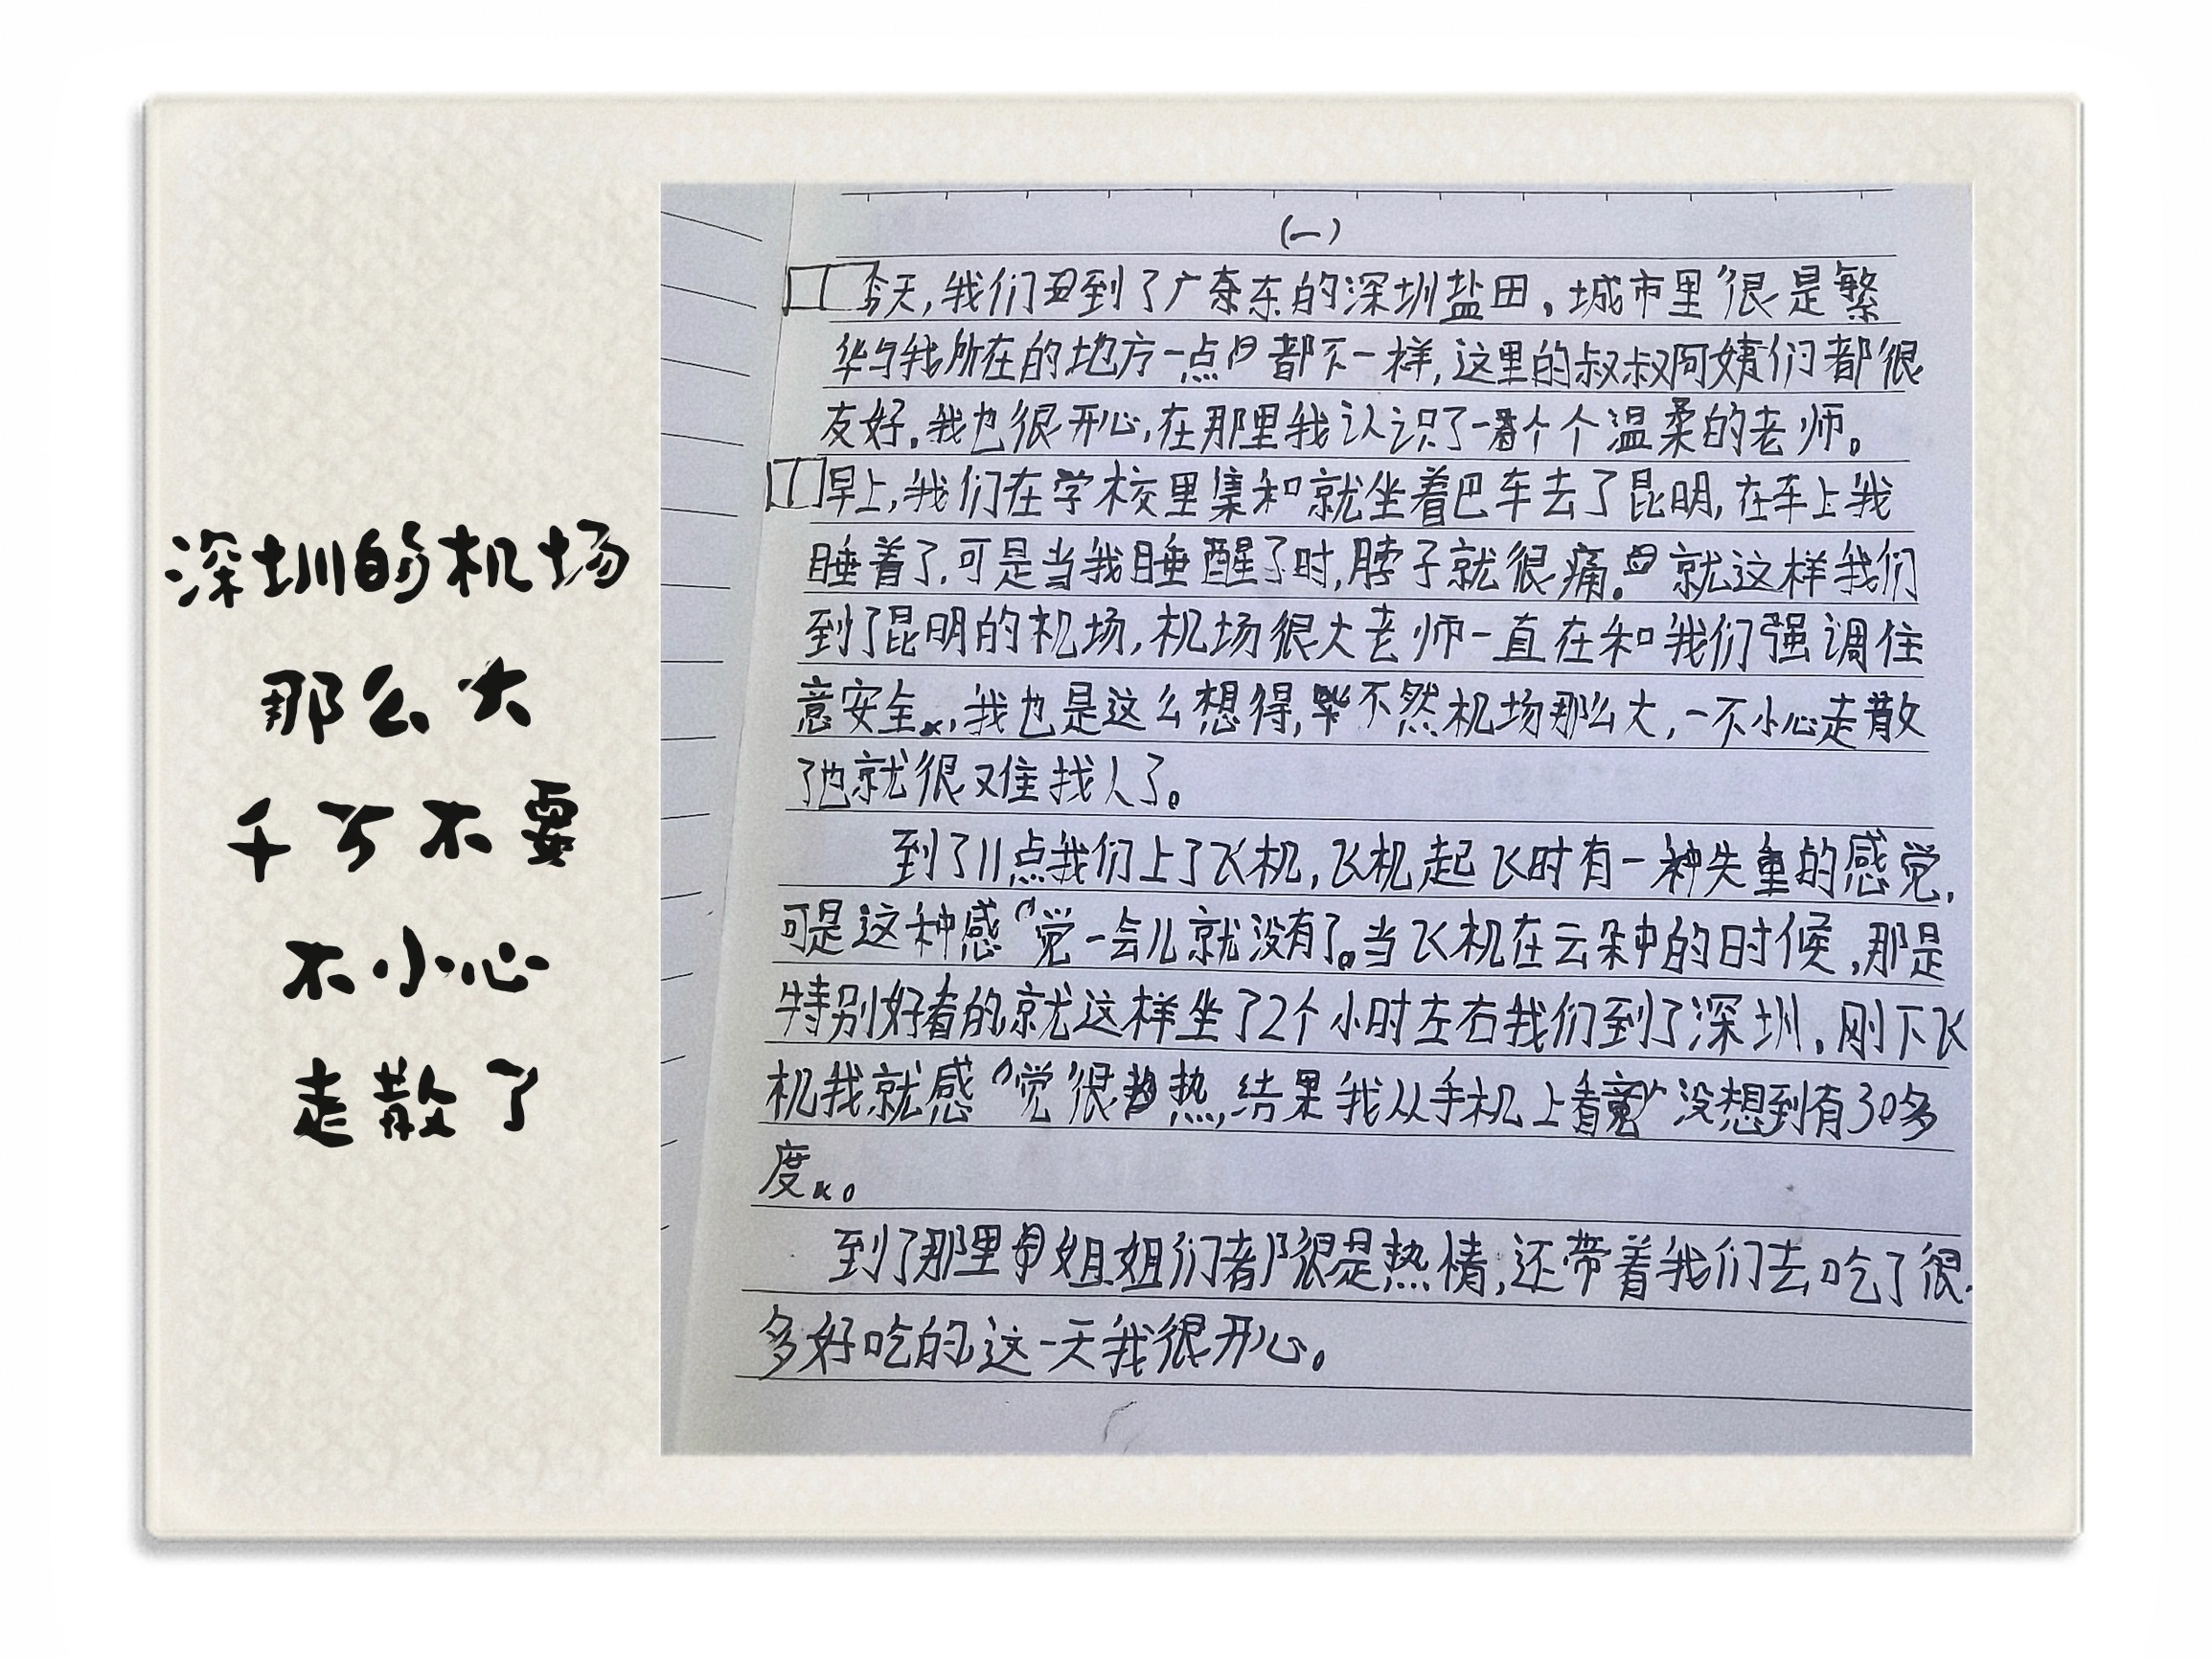 深圳的机场
那么大
千万不要
不小心
走散了
(一)
今天,我们到了广东的深圳盐田,城市里很是繁
华与我所在的地方一点都不一样,这里的叔叔阿姨们都很
友好,我也很开心,在那里我认识了一个个温柔的老师。
早上,我们在学校里集和就坐着巴车去了昆明,在车上我
睡着了,可是当我睡醒了时,脖子就很痛。就这样我们
到了昆明的机场,机场很大老师一直在和我们强调住
意安全,我也是这么想得,不然机场那么大,一不小心走散
了也就很难找人了。
到了11点我们上了飞机,飞机起飞时有一种失重的感觉,
可是这种感觉一会儿就没有了。当飞机在云朵中的时候,那是
特别好看的就这样坐了2个小时左右我们到了深圳,刚下飞
机我就感觉很热,结果我从手机上看没想到有30多
度。
到了那里姐姐们都很是热情,还带着我们去吃了很
多好吃的这一天我很开心。